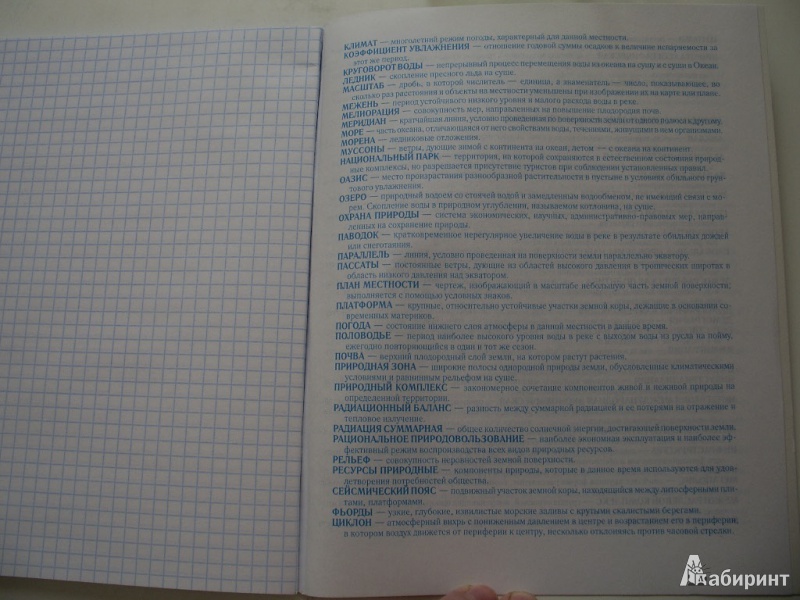 КЛИМАТ — многолетний режим погоды, характерный для данной местности.
КОЭФФИЦИЕНТ УВЛАЖНЕНИЯ — отношение годовой суммы осадков к величине испаряемости за
этот же период.
КРУГОВОРОТ ВОДЫ — непрерывный процесс перемещения воды из океана на сушу и с суши в Океан.
ЛЕДНИК — скопление пресного льда на суше.
МАСШТАБ — дробь, в которой числитель — единица, а знаменатель — число, показывающее, во
сколько раз расстояния и объекты на местности уменьшены при изображении их на карте или плане.
МЕЖЕНЬ — период устойчивого низкого уровня и малого расхода воды в реке.
МЕЛИОРАЦИЯ — совокупность мер, направленных на повышение плодородия почв.
МЕРИДИАН — кратчайшая линия, условно проведенная по поверхности земли от одного полюса к другому.
МОРЕ — часть океана, отличающаяся от него свойствами воды, течениями, живущими в нем организмами
МОРЕНА — ледниковые отложения.
МУССОНЫ — ветры, дующие зимой с континента на океан, летом — с океана на континент.
НАЦИОНАЛЬНЫЙ ПАРК — территория, на которой сохраняются в естественном состоянии природ-
ные комплексы, но разрешается присутствие туристов при соблюдении установленных правил.
ОАЗИС — место произрастания разнообразной растительности в пустыне в условиях обильного грун-
тового увлажнения.
ОЗЕРО — природный водоем со стоячей водой и замедленным водообменом, не имеющий связи с мо-
рем. Скопление воды в природном углублении, называемом котловина, на суше.
ОХРАНА ПРИРОДЫ — система экономических, научных, административно-правовых мер, направ-
ленных на сохранение природы.
ПАВОДОК — кратковременное нерегулярное увеличение воды в реке в результате обильных дождей
или снеготаяния.
ПАРАЛЛЕЛЬ — линия, условно проведенная на поверхности земли параллельно экватору.
ПАССАТЫ — постоянные ветры, дующие из областей высокого давления в тропических широтах в
область низкого давления над экватором.
ПЛАН МЕСТНОСТИ — чертеж, изображающий в масштабе небольшую часть земной поверхности;
выполняется с помощью условных знаков.
ПЛАТФОРМА — крупные, относительно устойчивые участки земной коры, лежащие в основании со-
временных материков.
ПОГОДА — состояние нижнего слоя атмосферы в данной местности в данное время.
ПОЛОВОДЬЕ — период наиболее высокого уровня воды в реке с выходом воды из русла на пойму,
ежегодно повторяющийся в один и тот же сезон.
ПОЧВА — верхний плодородный слой земли, на котором растут растения.
ПРИРОДНАЯ ЗОНА — широкие полосы однородной природы земли, обусловленные климатическими
условиями и равнинным рельефом на суше.
ПРИРОДНЫЙ КОМПЛЕКС — закономерное сочетание компонентов живой и неживой природы на
определенной территории.
РАДИАЦИОННЫЙ БАЛАНС — разность между суммарной радиацией и ее потерями на отражение и
тепловое излучение.
РАДИАЦИЯ СУММАРНАЯ — общее количество солнечной энергии, достигающей поверхности земли.
РАЦИОНАЛЬНОЕ ПРИРОДОПОЛЬЗОВАНИЕ — наиболее экономная эксплуатация и наиболее эф-
фективный режим воспроизводства всех видов природных ресурсов.
РЕЛЬЕФ — совокупность неровностей земной поверхности.
РЕСУРСЫ ПРИРОДНЫЕ — компоненты природы, которые в данное время используются для удов-
летворения потребностей общества.
СЕЙСМИЧЕСКИЙ ПОЯС — подвижный участок земной коры, находящийся между литосферными пли-
тами, платформами.
ФЬОРДЫ — узкие, глубокие, извилистые морские заливы с крутыми скалистыми берегами.
ЦИКЛОН — атмосферный вихрь с пониженным давлением в центре и возрастанием его в периферии;
в котором воздух движется от периферии к центру, несколько отклоняясь против часовой стрелки.
Лабиринт